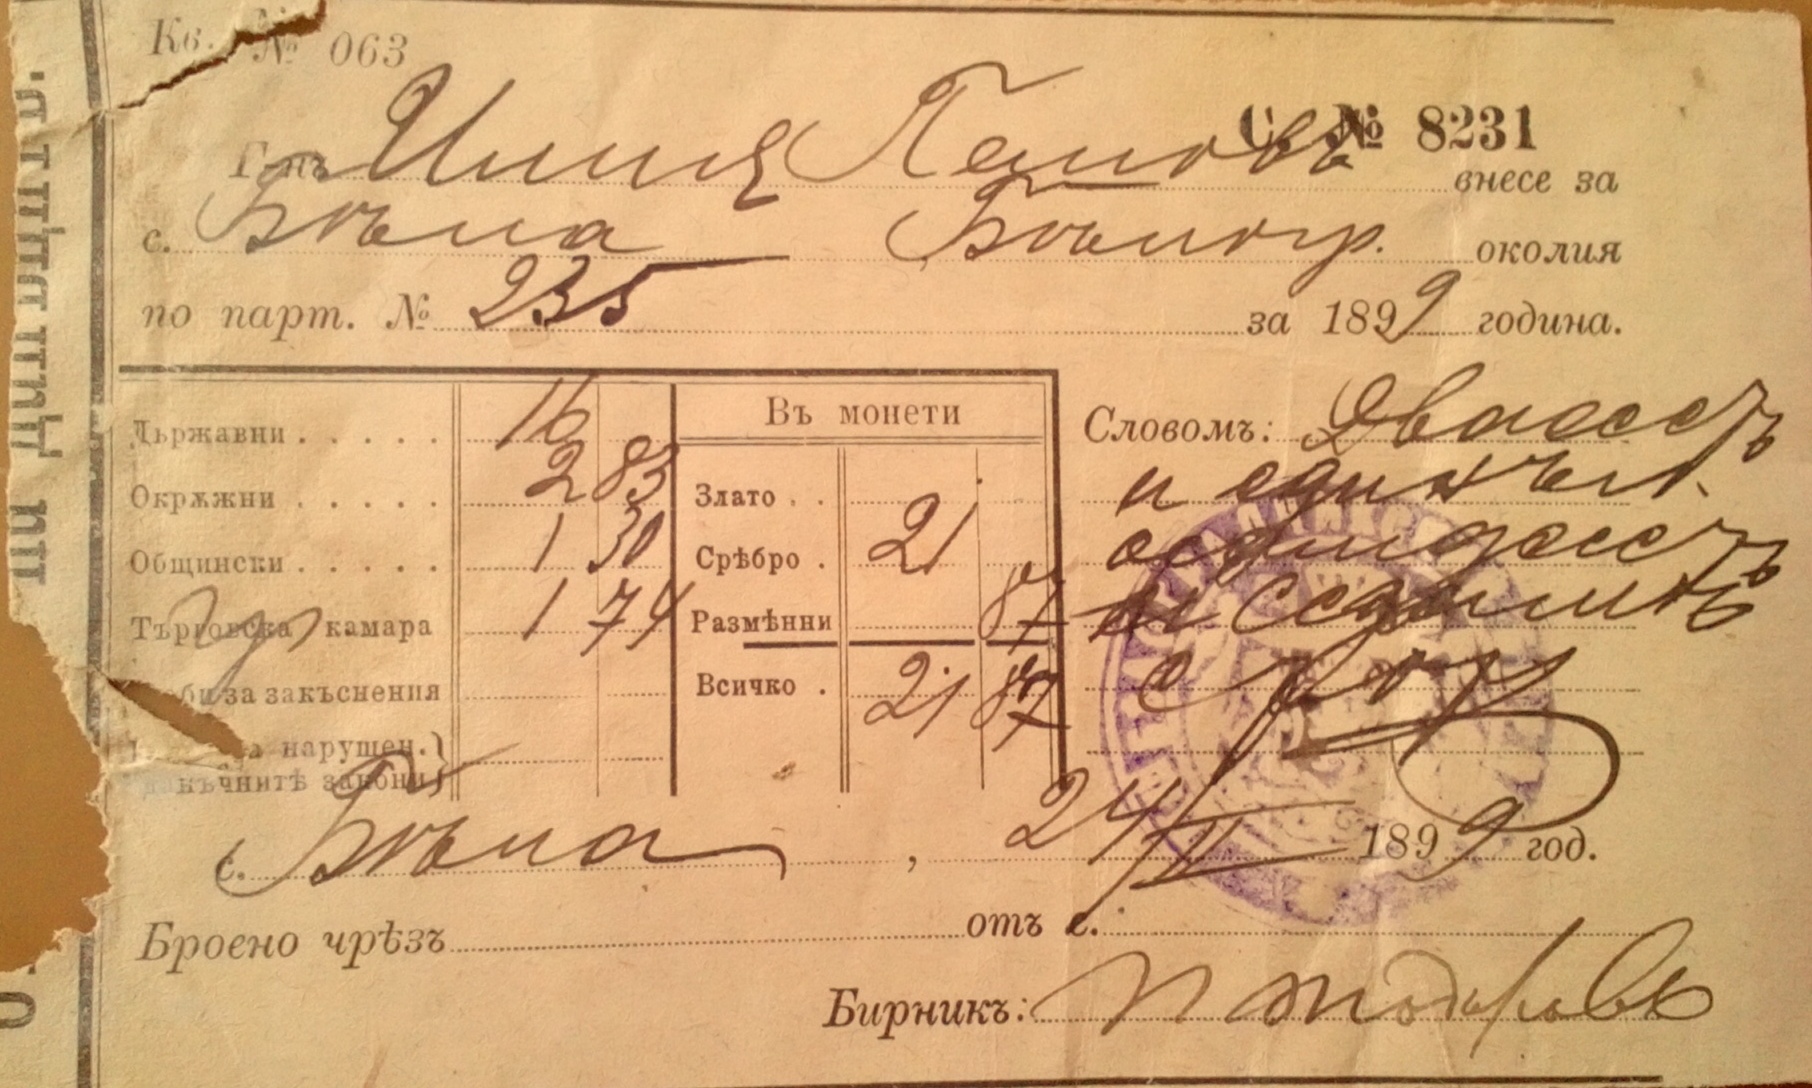 Кв. № 063
С. № 8231
Г-нъ Илия Петковъ внесе за
с. Бѣла Бѣлогр. околия
по парт. № 235 за 1899 година.
Държавни . . . . . 16
Окрѫжни . . . . . 2 83
Общински . . . . . 1 30
Търговска камара 1 74
за закъснения
нарушен.
законы
Въ монети
Злато . .
Срѣбро . 21
Размѣнни 87
Всичко . 21 87
Словомъ: Двадесеть
и единъ л.
осемдесеть
и седемь
с. Бѣла , 24/VI 1899 год.
Броено чрѣзъ от с.
Бирникъ: П Тодоровъ